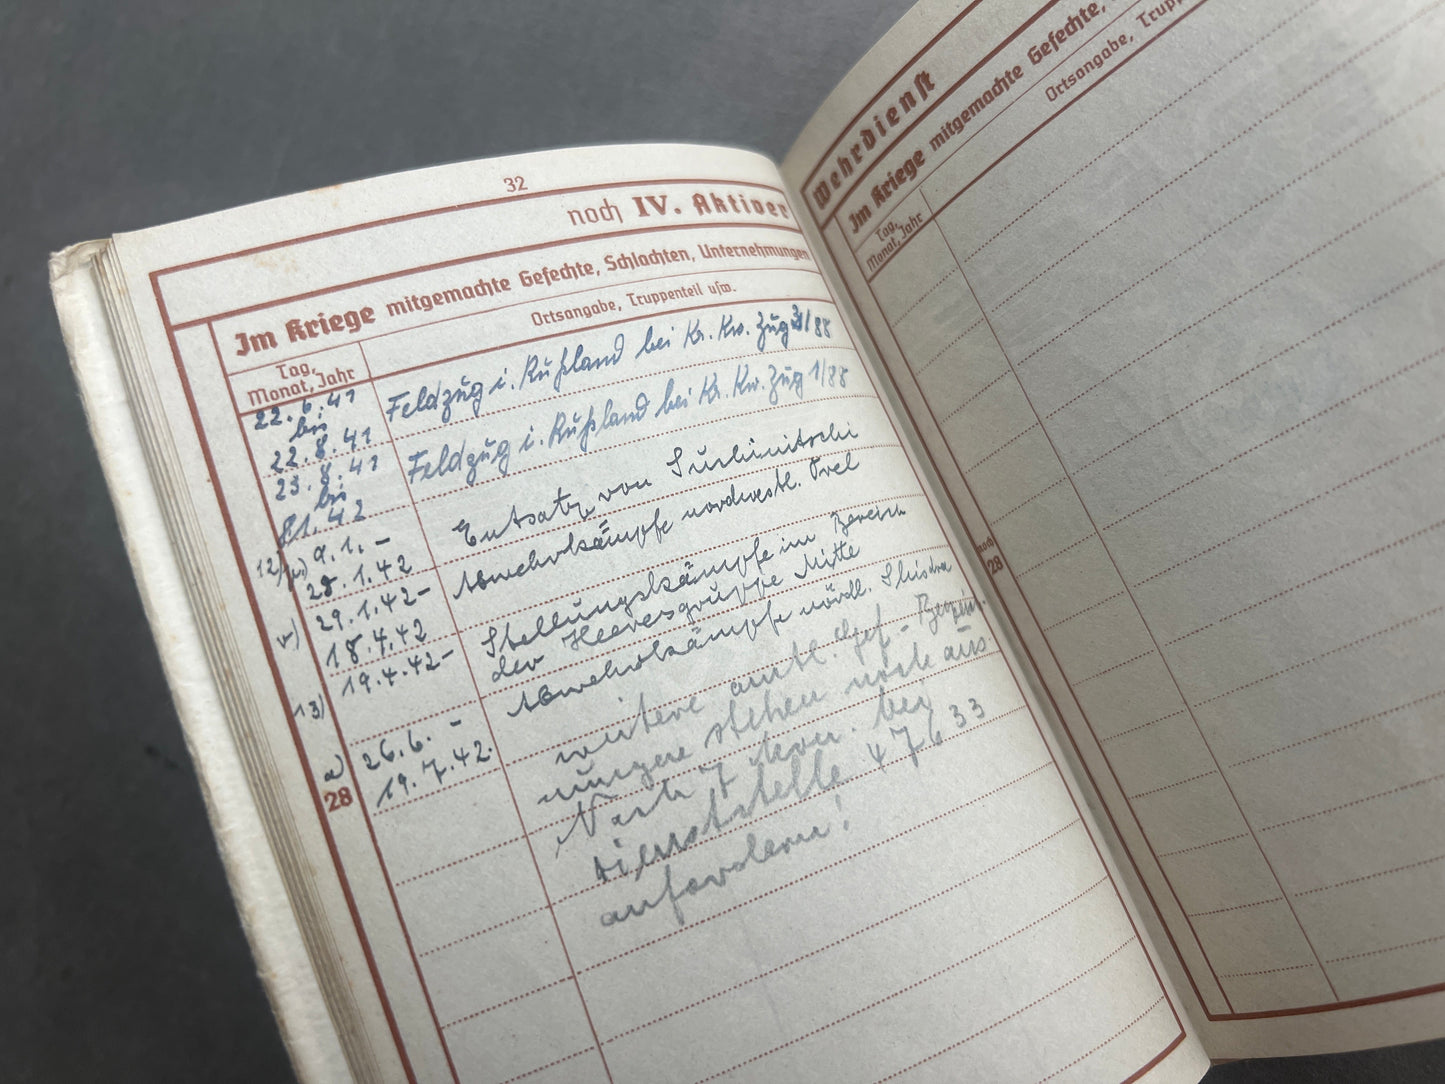 32
noch IV. Aktiver
Im Kriege mitgemachte Gefechte, Schlachten, Unternehmungen
Tag, Monat, Jahr
Ortsangabe, Truppenteil usw.
22.6.41 bis 22.8.41 Feldzug i. Rußland bei Kr. Kw. Zug 3/88
23.8.41 bis 8.1.42 Feldzug i. Rußland bei Kr. Kw. Zug 1/88
12) 9.1.- 28.1.42 Entsatz von Suchinitschi
29.1.42- 18.4.42 Abwehrkämpfe nordwestl. Orel
19.4.42- Stellungskämpfe im Bereich
der Heeresgruppe Mitte
13) 26.6.- 19.7.42. Abwehrkämpfe nördl. Shisdra
weitere amtl. Gef-
stehen noch aus
7 bei
Dienststelle 47633
anfordern!
a)
28
Wehrdienst
Im Kriege mitgemachte Gefechte,
Tag, Monat, Jahr
Ortsangabe, Truppen
noch 28